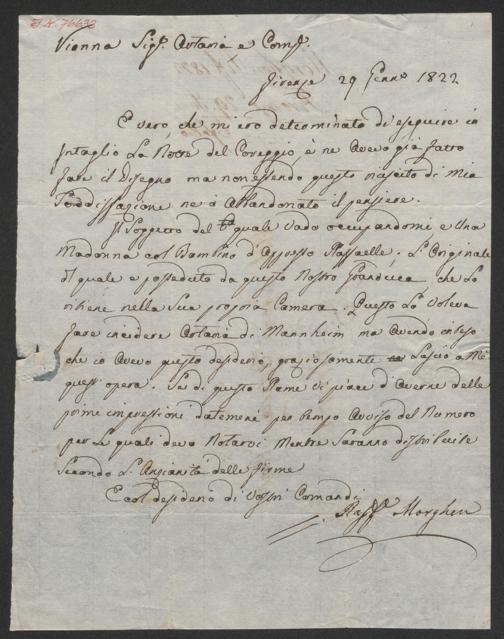 Vienna Sigr. Artaria e Comp.
Firenze 29 Genno. 1822
E vero che mi ero determinato di eseguire in
Intaglio La Notte del Coreggio, e ne Avevo già fatto
fare il Disegno ma non essendo questo riescito di Mia
Soddisfazione ne ò Abbandonato il pensiere.
Il Soggetto del quale Vado occupandomi e Una
Madonna col Bambino d'Appresso Raffaelle. L'Originale
Il quale e posseduto da questo Nostro Granduca, che Lo
ritiene nella Sua propria Camera. Questo Lo Voleva
fare incidere Artaria di Mannheim ma Avendo inteso
che io Avevo questo desiderio, graziosamente Lascio a Me
quest'opera. Se di questo Rame Vi piace d'Averne delle
prime impressioni datemene per tempo Avviso del Numero
per Le quali devo Notarvi Mentre Saranno distribuite
Secondo L'Anzianità delle firme
E col desiderio di Vostri Comandi
Raffo. Morghen